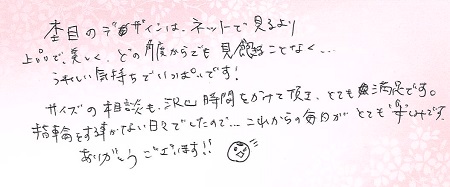 杢目のデザインは、ネットで見るより
上品で、美しく、どの角度からでも見飽きることなく…
うれしい気持ちでいっぱいです!
サイズの相談も、沢山時間をかけて頂き、とても満足です。
指輪をする事がない日々でしたので… これからの毎日がとても楽しみです
ありがとうございます!!